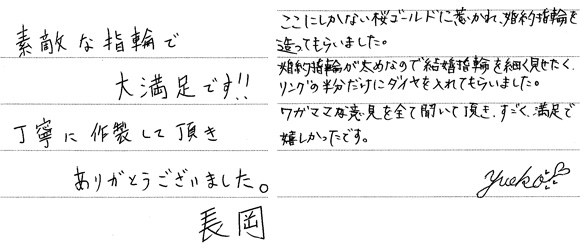 素敵な指輪で
大満足です!!
丁寧に作製して頂き
ありがとうございました。
長岡
ここにしかない桜ゴールドに惹かれ、婚約指輪を
造ってもらいました。
婚約指輪が太めなので結婚指輪を細く見せたく、
リングの半分だけにダイヤを入れてもらいました。
ワガママな意見を全て聞いて頂き、すごく、満足で
嬉しかったです。
yueko